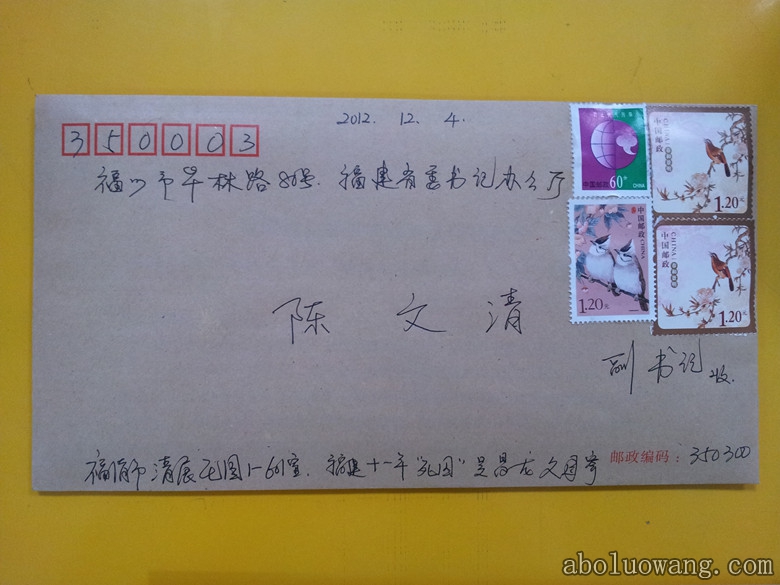 2012. 12. 4.
350003
福州市华林路80号. 福建省委书记办公厅
中国邮政 60分 CHINA
中国邮政 CHINA 1.20元
中国邮政 CHINA 1.20元
中国邮政 CHINA 1.20元
陈文清
副书记 收.
福清市清展花园1-601室. 福建十一年"死囚"吴昌龙父母寄
邮政编码：350300
aboluowang.com